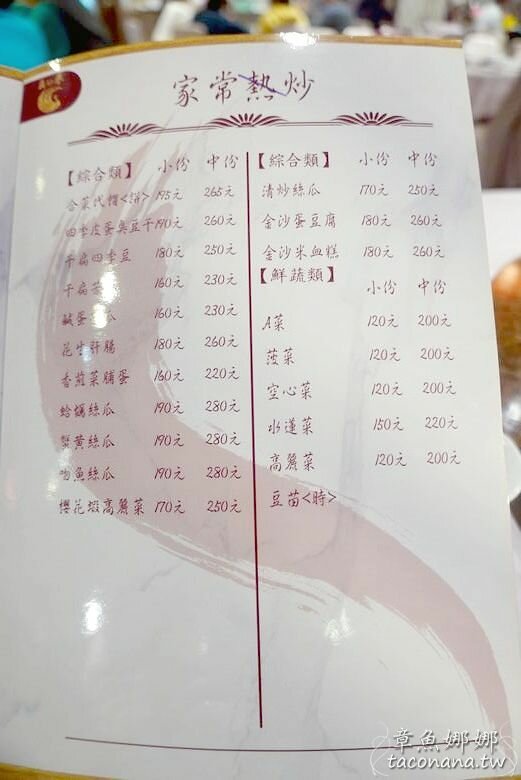 家常熱炒
【綜合類】 小份 中份
合菜代帽<餅> 195元 265元
四季皮蛋臭豆干 190元 260元
干扁四季豆 180元 250元
干扁 160元 230元
鹹蛋 瓜 160元 230元
花生肝腸 180元 260元
香煎菜脯蛋 160元 220元
蛤蠣絲瓜 190元 280元
蟹黃絲瓜 190元 280元
吻魚絲瓜 190元 280元
櫻花蝦高麗菜 170元 250元
【綜合類】 小份 中份
清炒絲瓜 170元 260元
金沙蛋豆腐 180元 260元
金沙米血糕 180元 260元
【鮮蔬類】 小份 中份
A菜 120元 200元
菠菜 120元 200元
空心菜 120元 200元
水蓮菜 150元 220元
高麗菜 120元 200元
豆苗<時>
章魚娜娜
taconana.tw